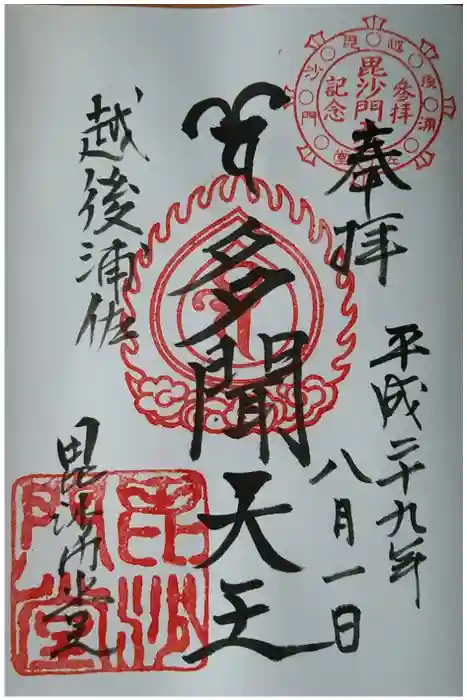 奉拝
平成二十九年
八月一日
多聞天王
越後浦佐
毘沙門堂
毘沙門
参拝
記念
越後浦佐毘沙門堂
毘沙門堂